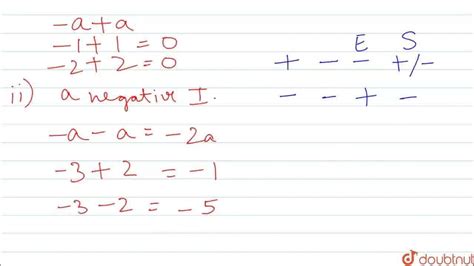 -a + a
-1 + 1 = 0
-2 + 2 = 0
ii) a negative I.
-a - a = -2a
-3 + 2 = -1
-3 - 2 = -5
E S
+ - - +/-
- - + -
doubtnut